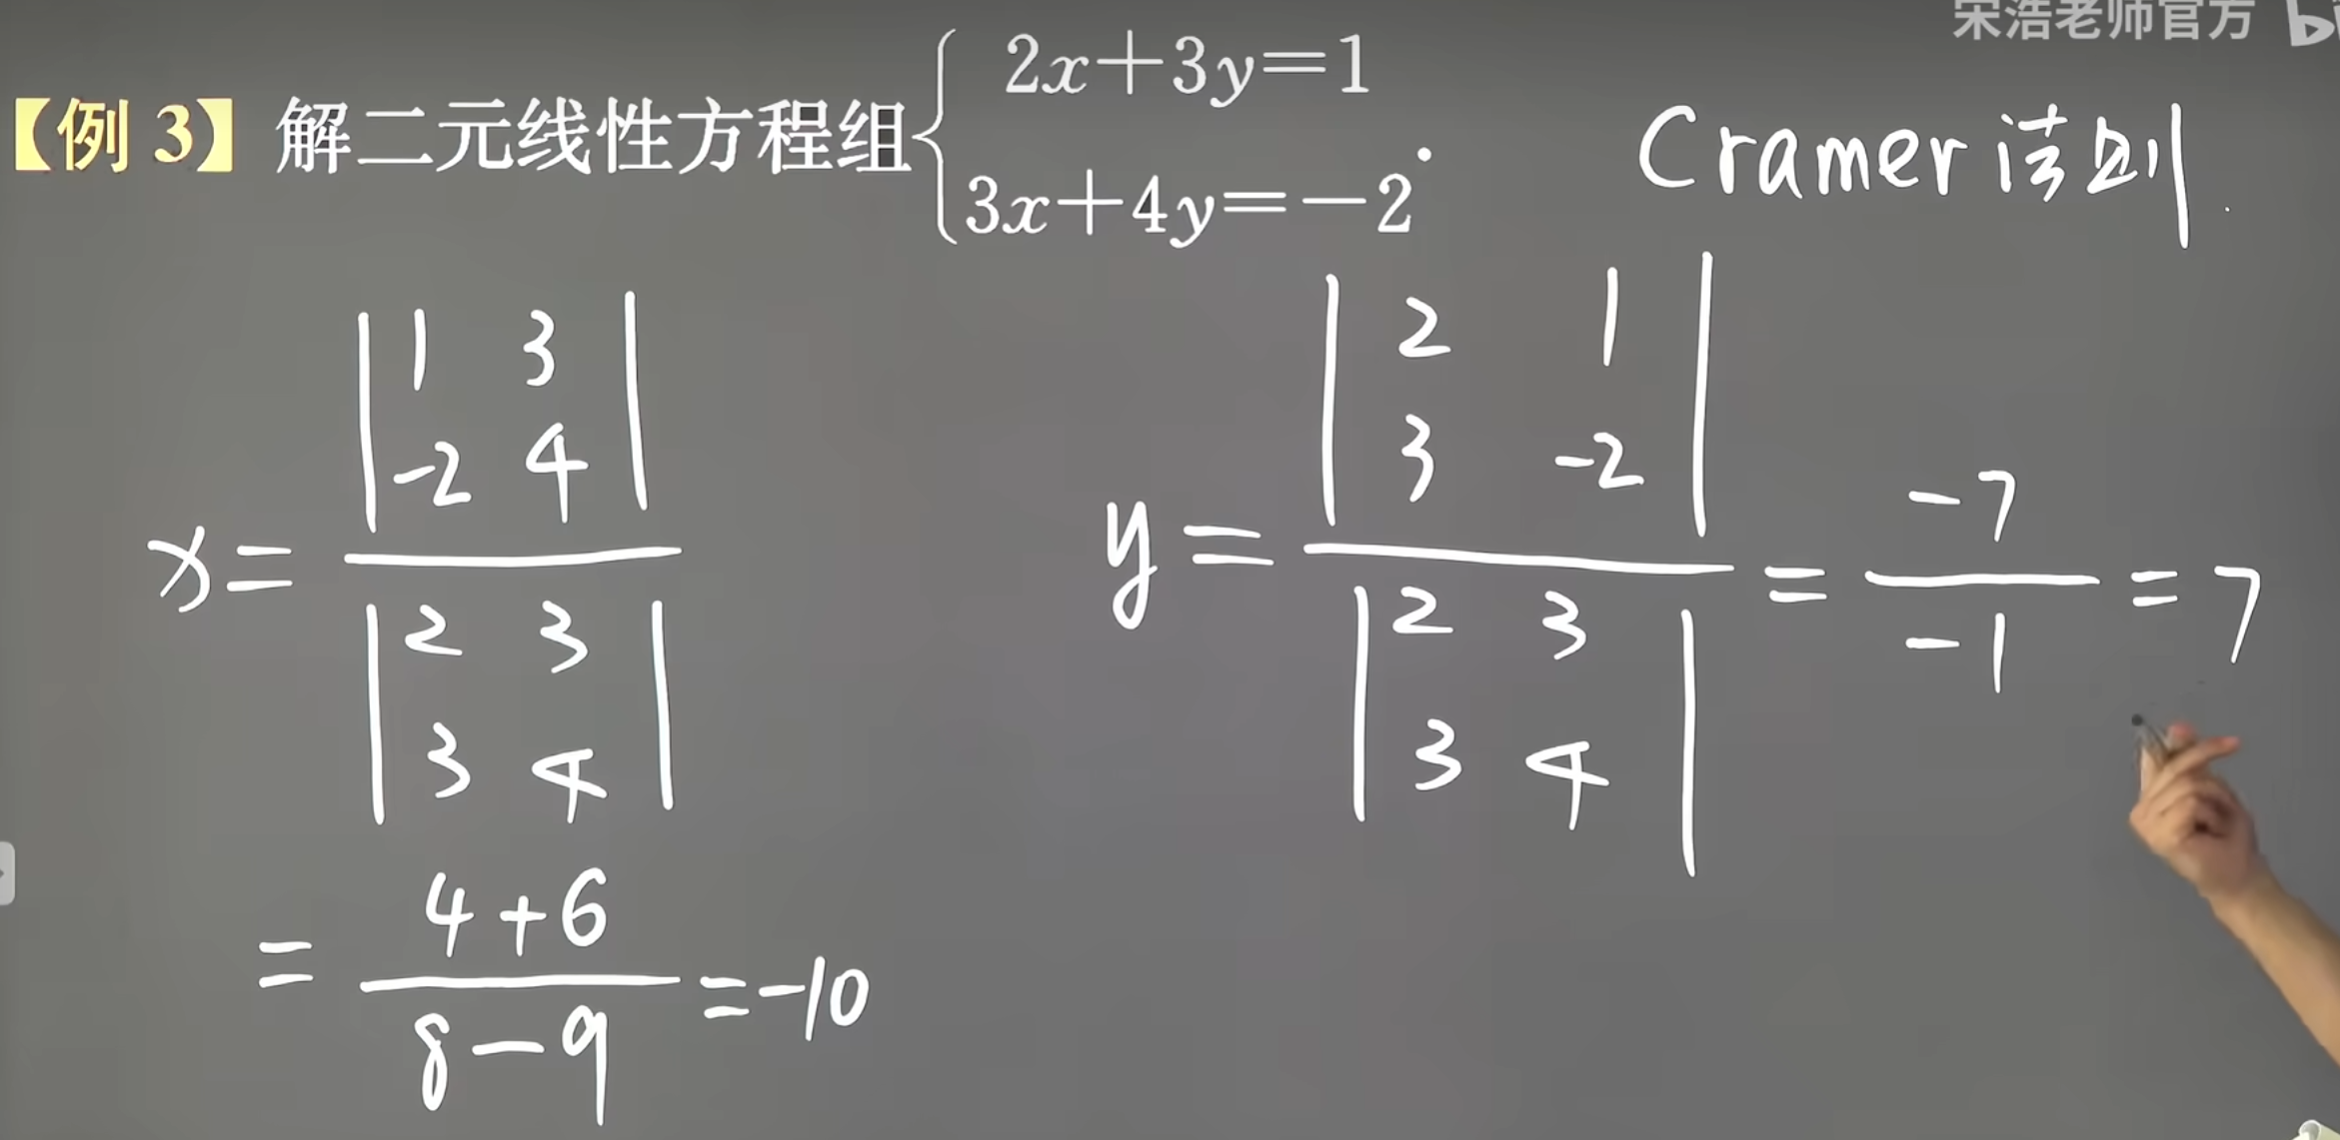 宋浩老师官方 bi
【例 3】 解二元线性方程组 { 2x+3y=1
3x+4y=-2 .
Cramer 法则
x= | 1 3
-2 4 |
| 2 3
3 4 |
= 4+6 / 8-9 = -10
y= | 2 1
3 -2 |
| 2 3
3 4 |
= -7 / -1 = 7